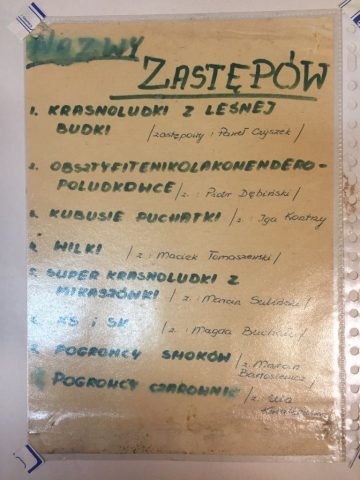 NAZWY
ZASTĘPÓW
1. KRASNOLUDKI Z LEŚNEJ
BUDKI /zastępowy: Paweł
2. OBSZTYFITENIKOLAKOMENDERO-
POLUDKOWCE /z.: Piotr Dębiński/
3. KUBUSIE PUCHATKI /z.: Iga
4. WILKI /z.: Maciek Tomaszewski/
5. SUPER KRASNOLUDKI Z
MIKASZÓWKI /z.: Marcin
XS i SK /z.: Magda
POGROMCY SMOKÓW /z. Marcin
Bartosiewicz/
POGROMCY CZAROWNIC /z.